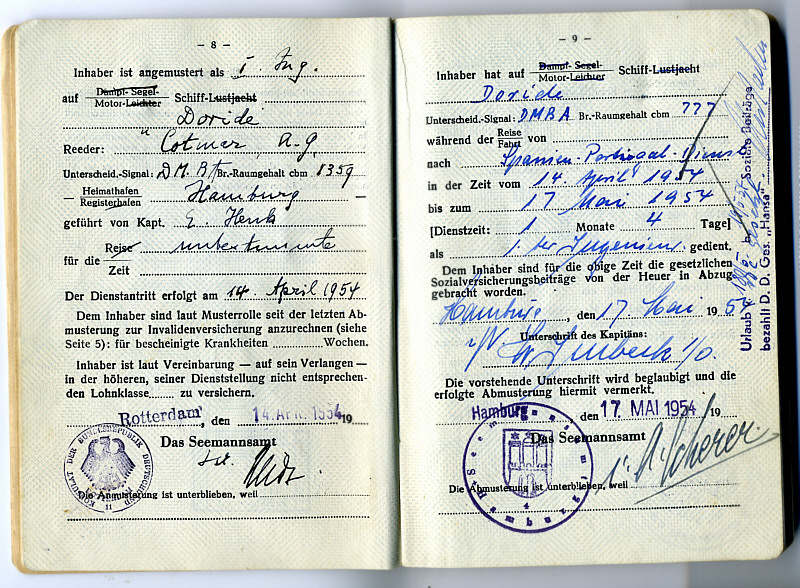 – 8 –
Inhaber ist angemustert als I. Ing.
auf Dampf- Segel-
Motor-Leichter Schiff-Lustjacht
Doride
Reeder: "Cotmar, A.G.
Unterscheid.-Signal: DMBA Br.-Raumgehalt cbm 8359
— Heimathafen
Registerhafen Hamburg —
geführt von Kapt. E. Henk
für die Reise
Zeit unbestimmte
Der Dienstantritt erfolgt am 14 April 1954
Dem Inhaber sind laut Musterrolle seit der letzten Ab-
musterung zur Invalidenversicherung anzurechnen (siehe
Seite 5): für bescheinigte Krankheiten Wochen.
Inhaber ist laut Vereinbarung — auf sein Verlangen —
in der höheren, seiner Dienststellung nicht entsprechen-
den Lohnklasse zu versichern.
Rotterdam, den 14. APR. 1954 19
Das Seemannsamt
KONSULAT DER BUNDESREPUBLIK DEUTSCHLAND
11
Die Anmusterung ist unterblieben, weil
– 9 –
Inhaber hat auf Dampf- Segel-
Motor-Leichter Schiff-Lustjacht
Doride
Unterscheid.-Signal: DMBA Br.-Raumgehalt cbm 777
während der Reise
Fahrt von
nach Spanien-Portugal-Dienst
in der Zeit vom 14. April 1954
bis zum 17 Mai 1954
[Dienstzeit: 1 Monate 4 Tage]
als 1. ter Ingenieur gedient.
Dem Inhaber sind für die obige Zeit die gesetzlichen
Sozialversicherungsbeiträge von der Heuer in Abzug
gebracht worden.
Hamburg, den 17 Mai 1954
Unterschrift des Kapitäns:
Die vorstehende Unterschrift wird beglaubigt und die
erfolgte Abmusterung hiermit vermerkt.
Hamburg den 17. MAI 1954 19
Das Seemannsamt
Seemannsamt Hamburg
4
Die Abmusterung ist unterblieben, weil
Urlaub
Soziale Beiträge
bezahlt D. D. Ges. „Hansa"